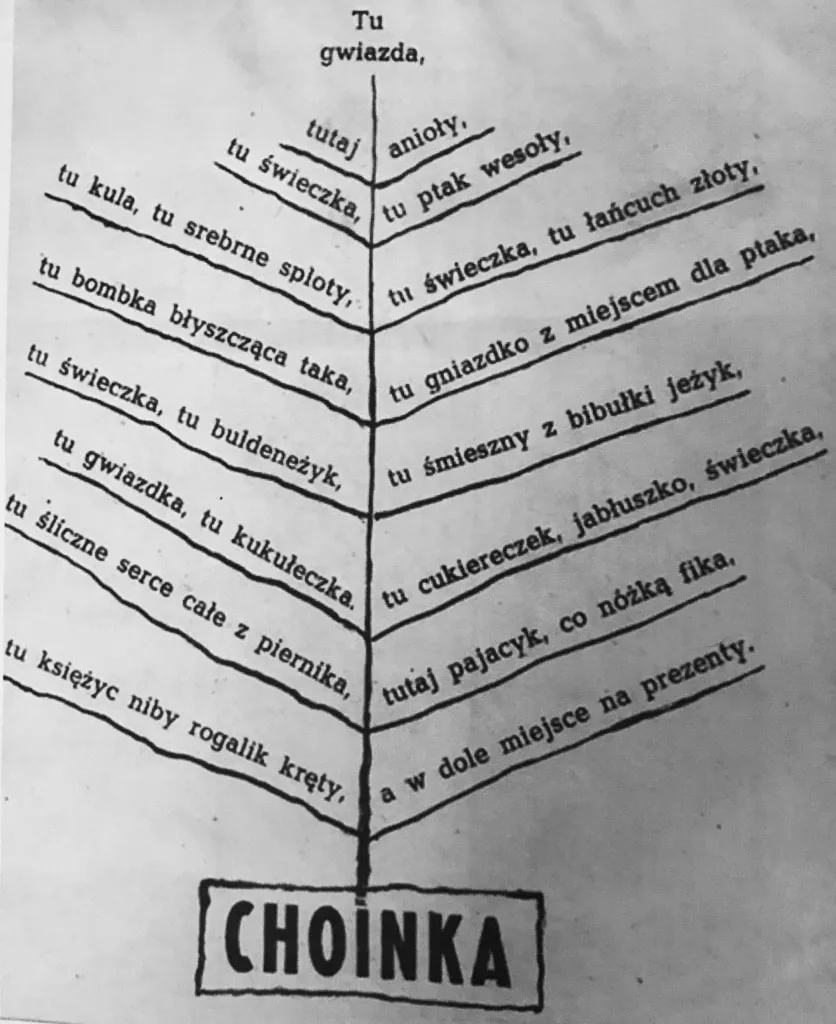 Tu
gwiazda,
tutaj anioły,
tu świeczka, tu ptak wesoły,
tu kula, tu srebrne sploty, tu świeczka, tu łańcuch złoty,
tu bombka błyszcząca taka, tu gniazdko z miejscem dla ptaka,
tu świeczka, tu buldeneżyk, tu śmieszny z bibułki jeżyk,
tu gwiazdka, tu kukułeczka. tu cukiereczek, jabłuszko, świeczka,
tu śliczne serce całe z piernika, tutaj pajacyk, co nóżką fika,
tu księżyc niby rogalik kręty, a w dole miejsce na prezenty.
CHOINKA